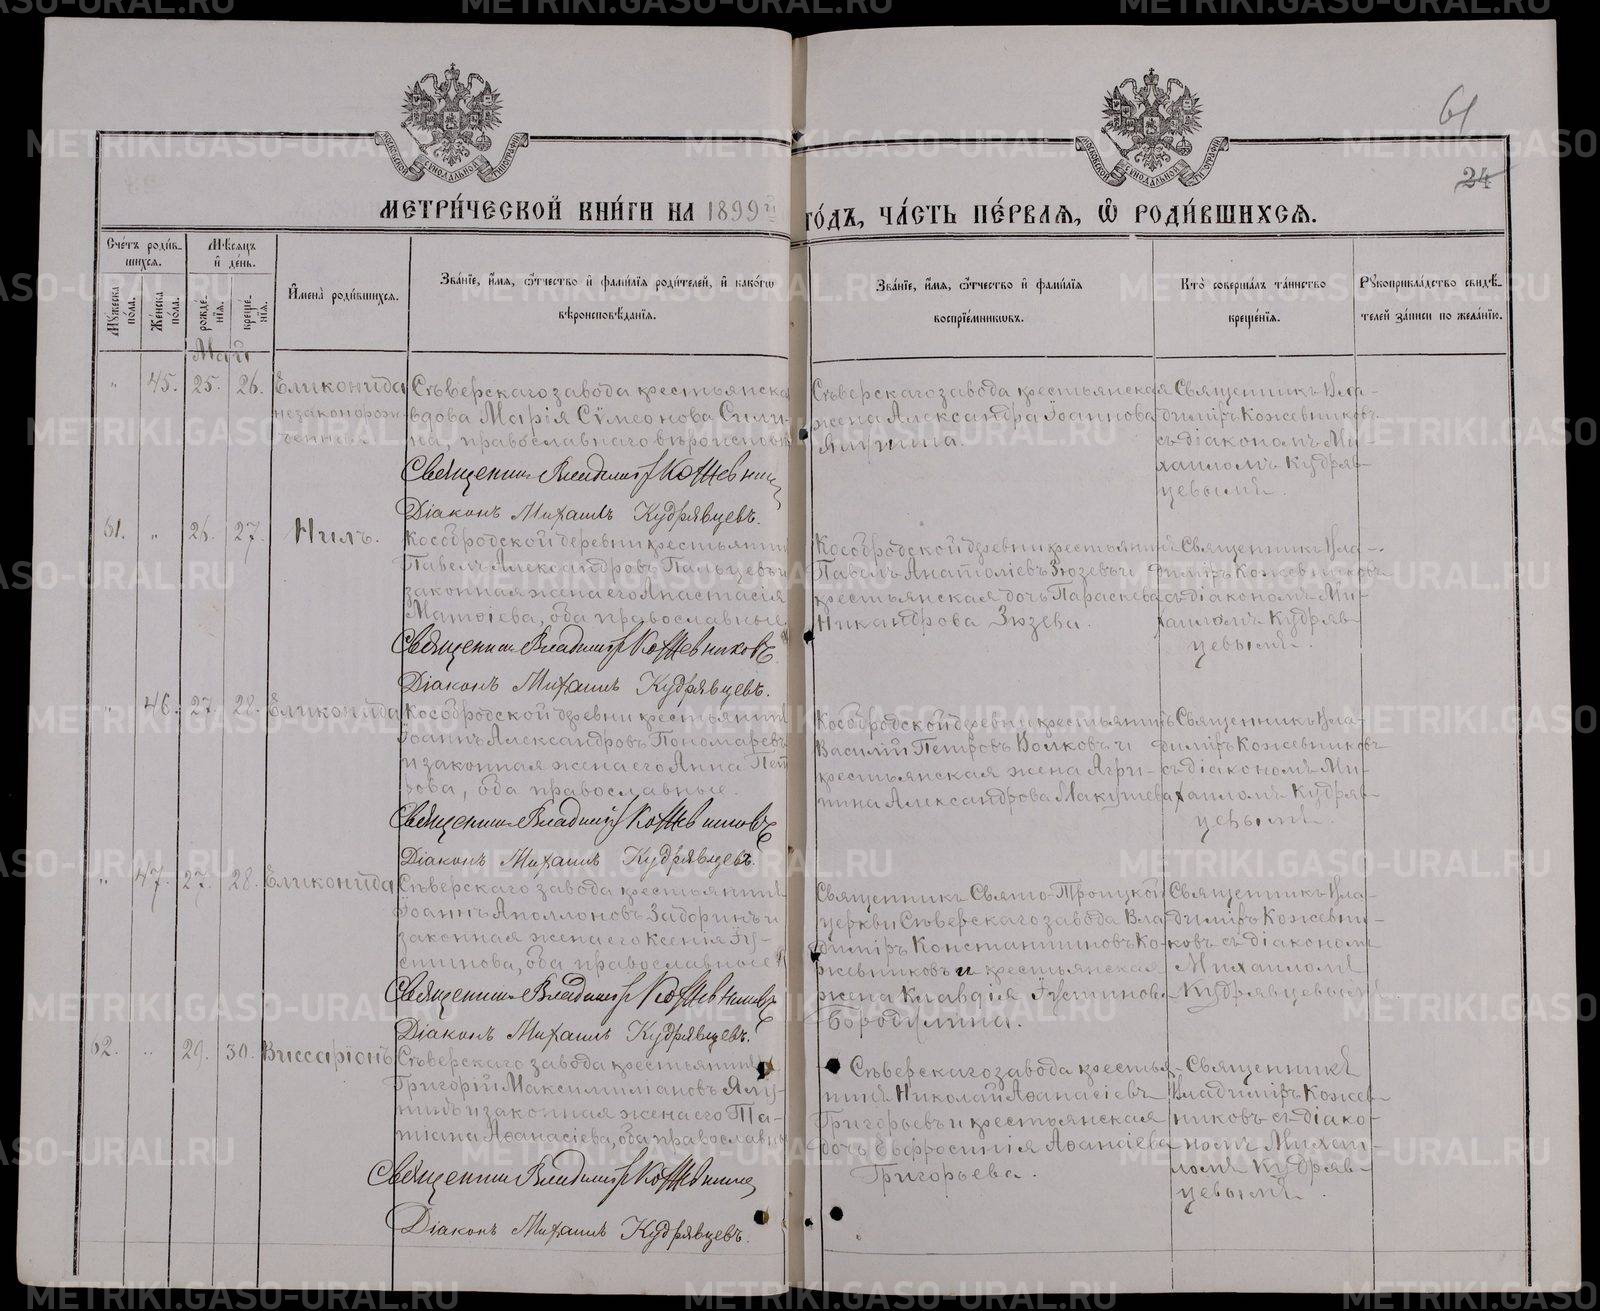 61
24
МЕТРИ́ЧЕСКОЙ КНИ́ГИ НА 1899й ГО́ДЪ, ЧА́СТЬ ПЕ́РВАЯ, Ѡ҆ РОДИ́ВШИХСЯ.
Сче́тъ роди́в-
шихся.
Мѣ́сяцъ
и҆ де́нь.
Му́жеска
по́ла.
Же́нска
по́ла.
рожде́-
нїя.
креще́-
нїя.
И҆мена̀ роди́вшихся.
Зва́нїе, и҆́мя, ѻ҆́тчество и҆ фами́лїя роди́телей, и҆ како́гѡ
вѣроисповѣ́данїя.
Зва́нїе, и҆́мя, ѻ҆́тчество и҆ фами́лїя
воспрїе́мниковъ.
Кто̀ соверша́лъ та́инство
креще́нїя.
Рукоприкла́дство свидѣ́-
телей за́писи по жела́нїю.
Май
" 45. 25. 26. Еликонида
незаконорож-
денная
Сѣверскаго завода крестьянска
вдова Марія Сѵмеонова Сили-
на, православнаго вѣроисповѣ
Священникъ Владимiръ Кожевник
Дiаконъ Михаилъ Кудрявцевъ.
Сѣверскаго завода крестьянская
жена Александра Іоаннова
Ялунина.
Священникъ Вла-
димiръ Кожевниковъ
съ дiакономъ Ми-
хаиломъ Кудряв-
цевымъ.
61. " 26. 27. Нилъ.
Кособродской деревни крестьянин
Павелъ Александровъ Пальцевъ и
законная жена его Анастасiя
Матѳiева, оба православные
Священникъ Владимiръ Кожевниковъ
Дiаконъ Михаилъ Кудрявцевъ.
Кособродской деревни крестьянинъ
Павелъ Анатолiевъ Зюзевъ и
крестьянская дочь Параскева
Никандрова Зюзева.
Священникъ Вла-
димiръ Кожевниковъ
съ дiакономъ Ми-
хаиломъ Кудряв-
цевымъ.
" 46. 27. 28. Еликонида
Кособродской деревни крестьянин
Іоаннъ Александровъ Пономаревъ
и законная жена его Анна Пет
рова, оба православные.
Священникъ Владимiръ Кожевниковъ
Дiаконъ Михаилъ Кудрявцевъ.
Кособродской деревни крестьянинъ
Василiй Петровъ Волковъ и
крестьянская жена Агри-
пина Александрова Макушева
Священникъ Вла-
димiръ Кожевниковъ
съ дiакономъ Ми-
хаиломъ Кудряв-
цевымъ.
" 47. 27. 28. Еликонида
Сѣверскаго завода крестьянинъ
Іоаннъ Аполлоновъ Заборинъ и
законная жена его Ксенiя Іу-
стинова, оба православные
Священникъ Владимiръ Кожевниковъ
Дiаконъ Михаилъ Кудрявцевъ.
Священникъ Свято-Троицкой
церкви Сѣверскаго завода Вла
димiръ Константиновъ Ко-
жевниковъ и крестьянская
жена Клавдiя Іустинова
Бородулина.
Священникъ Вла-
димiръ Кожевни-
ковъ съ дiакономъ
Михаиломъ
Кудрявцевымъ
62. " 29. 30. Виссарiонъ
Сѣверскаго завода крестьянинъ
Григорiй Максимилiановъ Ялу-
нинъ и законная жена его Та-
тiана Аѳанасiева, оба православны
Священникъ Владимiръ Кожевник
Дiаконъ Михаилъ Кудрявцевъ.
Сѣверскаго завода крестья-
нинъ Николай Аѳанасiевъ
Григорьевъ и крестьянская
дочь Евфросинiя Аѳанасiева
Григорьева.
Священникъ
Владимiръ Кожев
никовъ съ дiако-
номъ Михаи-
ломъ Кудряв-
цевымъ.